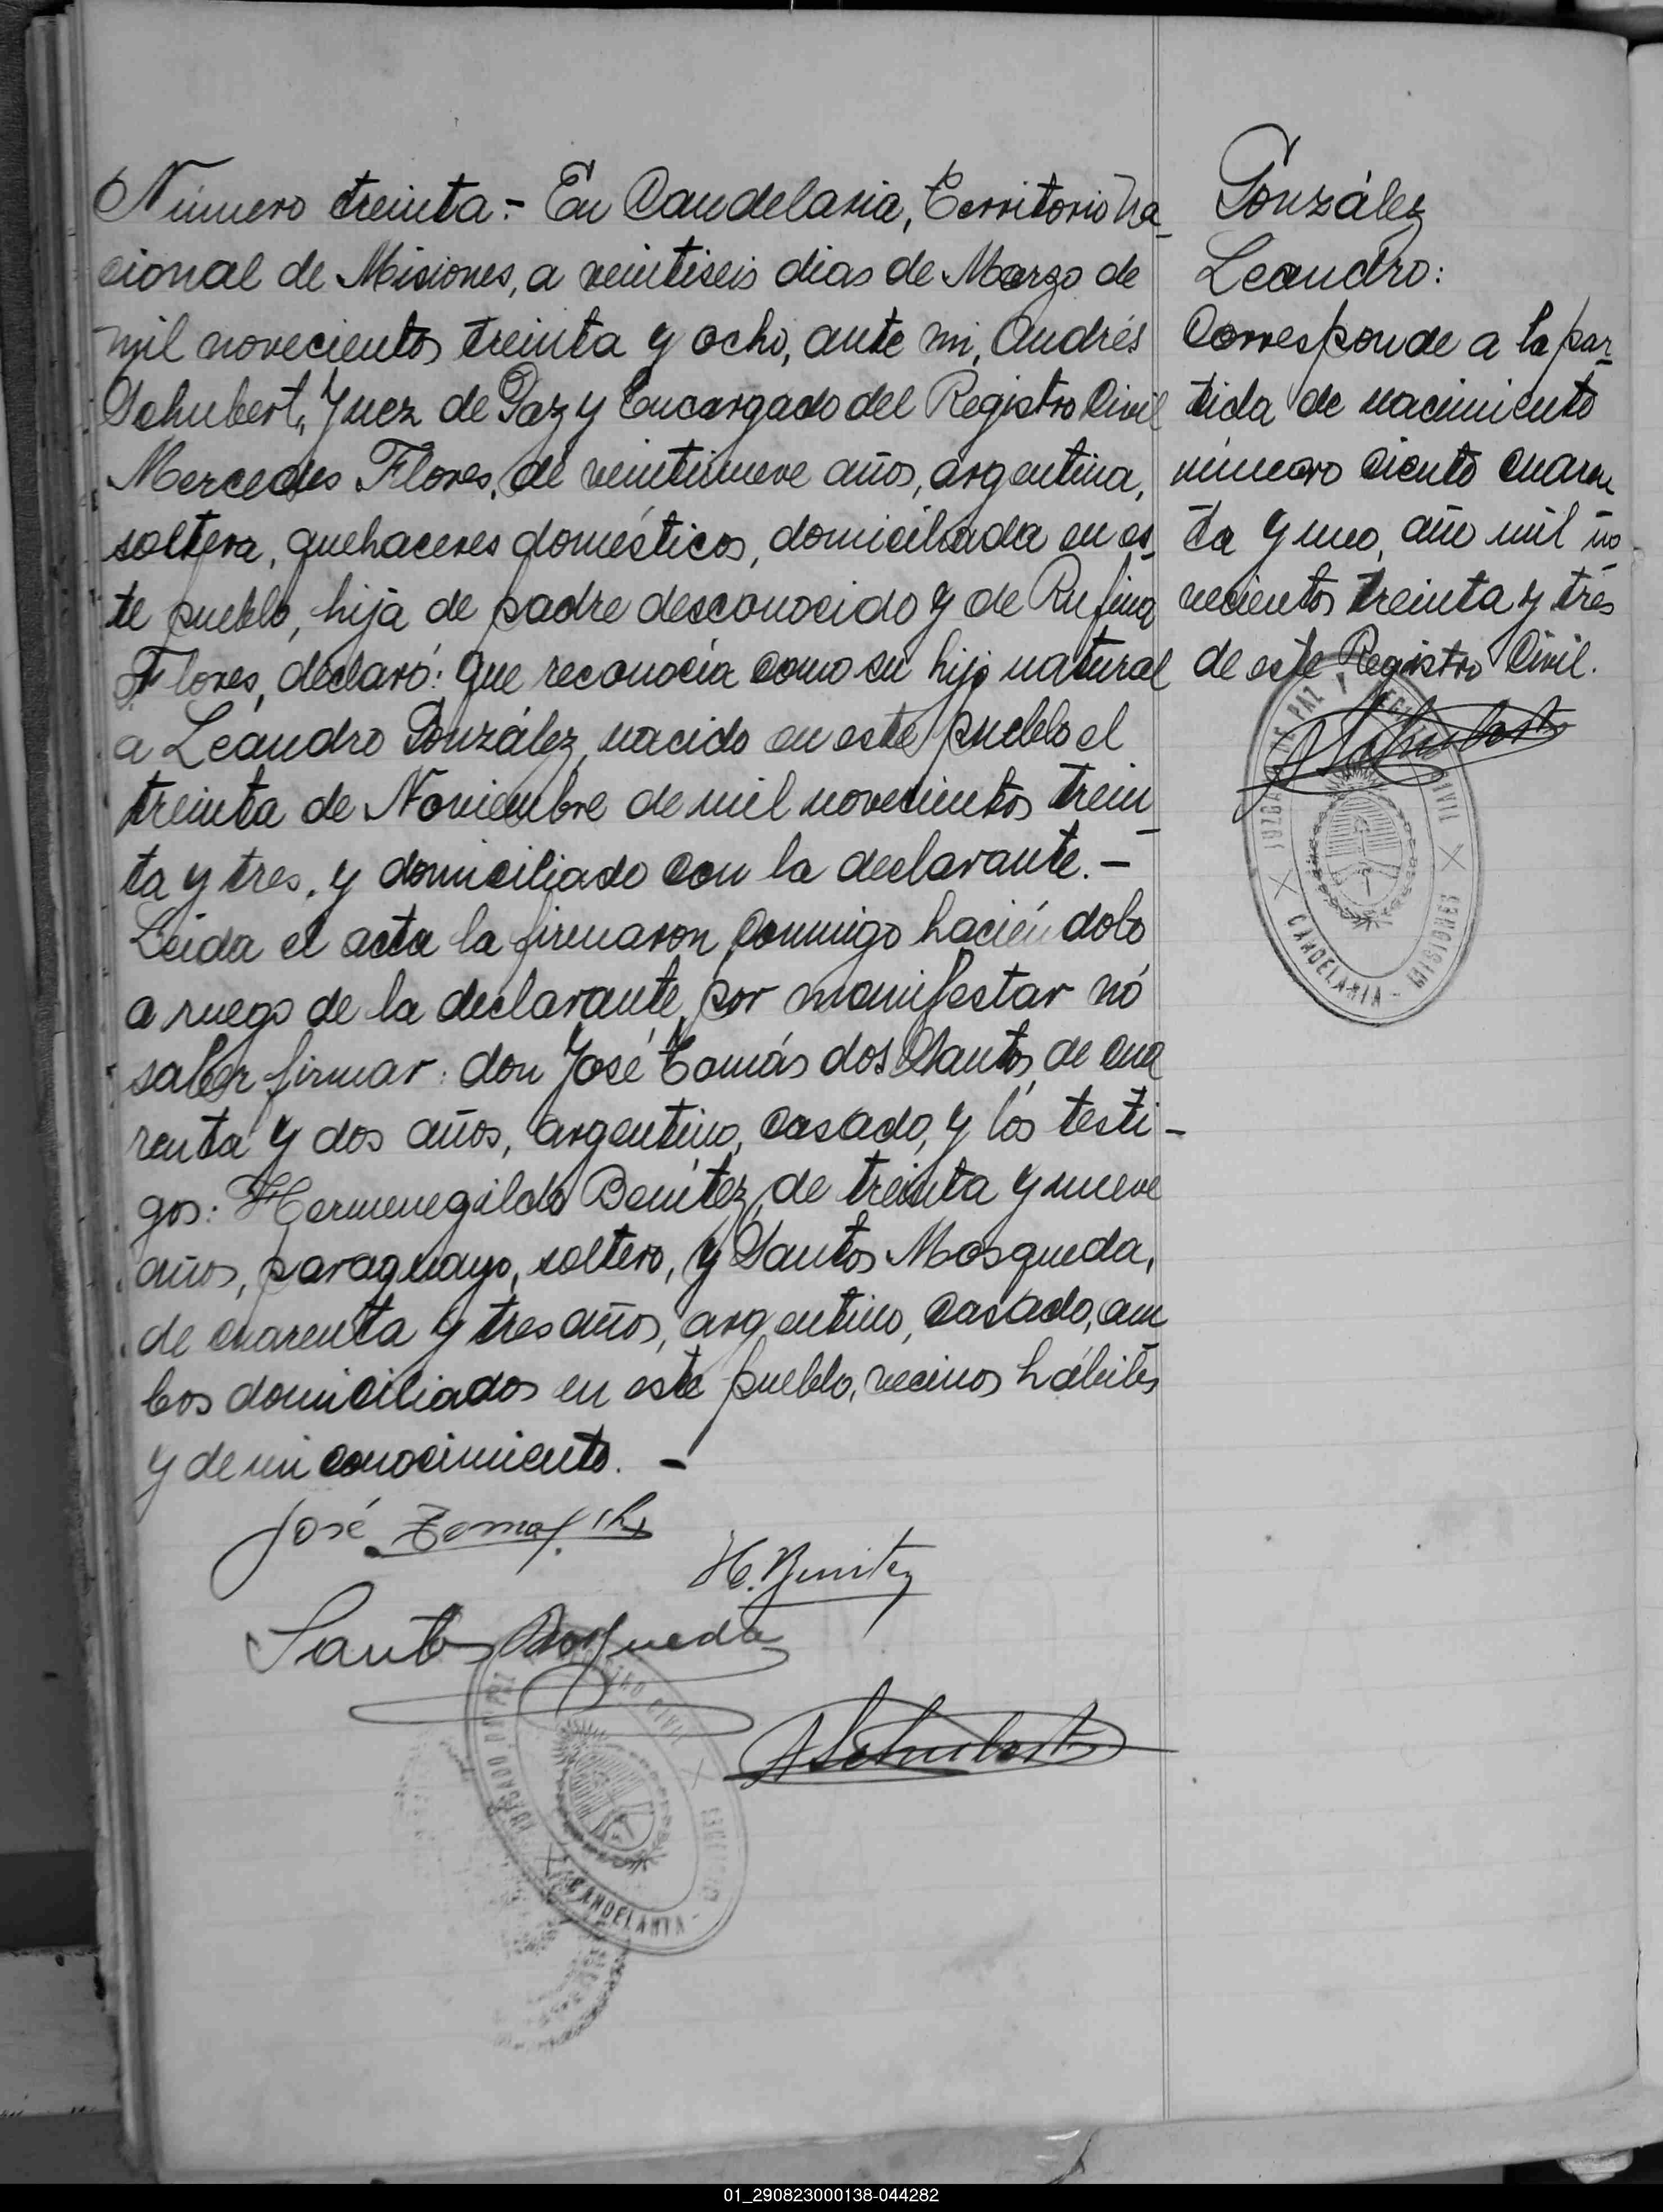 Número treinta.- En Candelaria, Territorio Na_
cional de Misiones, a veintiseis dias de Marzo de
mil novecientos treinta y ocho, ante mi, Andrés
Schubert, Juez de Paz y Encargado del Registro Civil
Mercedes Flores, de veintinueve años, argentina,
soltera, quehaceres domésticos, domiciliada en es_
te pueblo, hija de padre desconocido y de Rufina
Flores, declaró: que reconocía como su hijo natural
a Leandro González, nacido en este pueblo el
treinta de Noviembre de mil novecientos trein_
ta y tres, y domiciliado con la declarante.-
Leida el acta la firmaron conmigo haciéndolo
a ruego de la declarante, por manifestar nó
saber firmar: don José Tomás dos Santos, de cua
renta y dos años, argentino, casado, y los testi-
gos: Hermenegildo Benítez, de treinta y nueve
años, paraguayo, soltero, y Santos Mosqueda,
de cuarenta y tres años, argentino, casado, am
bos domiciliados en este pueblo, vecinos hábiles
y de mi conocimiento. -
José Tomas
H. Benitez
Santos Mosqueda
ASchubert
JUZGADO DE PAZ Y REGISTRO CIVIL
CANDELARIA - MISIONES
González
Leandro:
Corresponde a la par_
tida de nacimiento
número ciento cuaren
ta y uno, año mil no_
vecientos treinta y tres
de este Registro Civil.
ASchubert
JUZGADO DE PAZ Y REGISTRO CIVIL
CANDELARIA - MISIONES
01_290823000138-044282